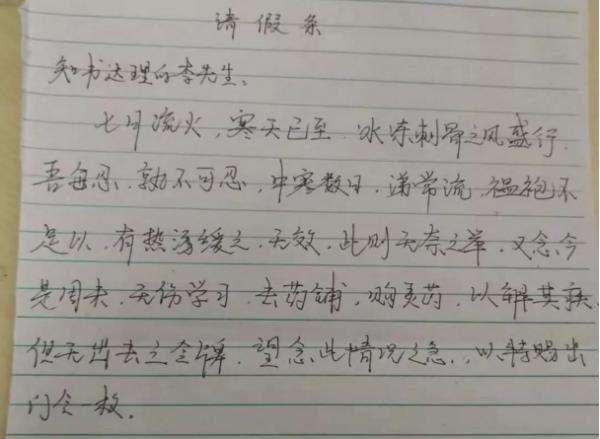 请假条
知书达理的李先生、
七月流火，寒天已至．冰冻刺骨之风盛行．
吾每忍、孰不可忍，中寒数日．涕常流．缊袍不
足以．有热汤缓之．无效．此则无奈之举．又念今
是周末．无伤学习．去药铺，购灵药．以解其疾．
但无出去之令牌．望念此情况之急．以特赐出
门令一枚．